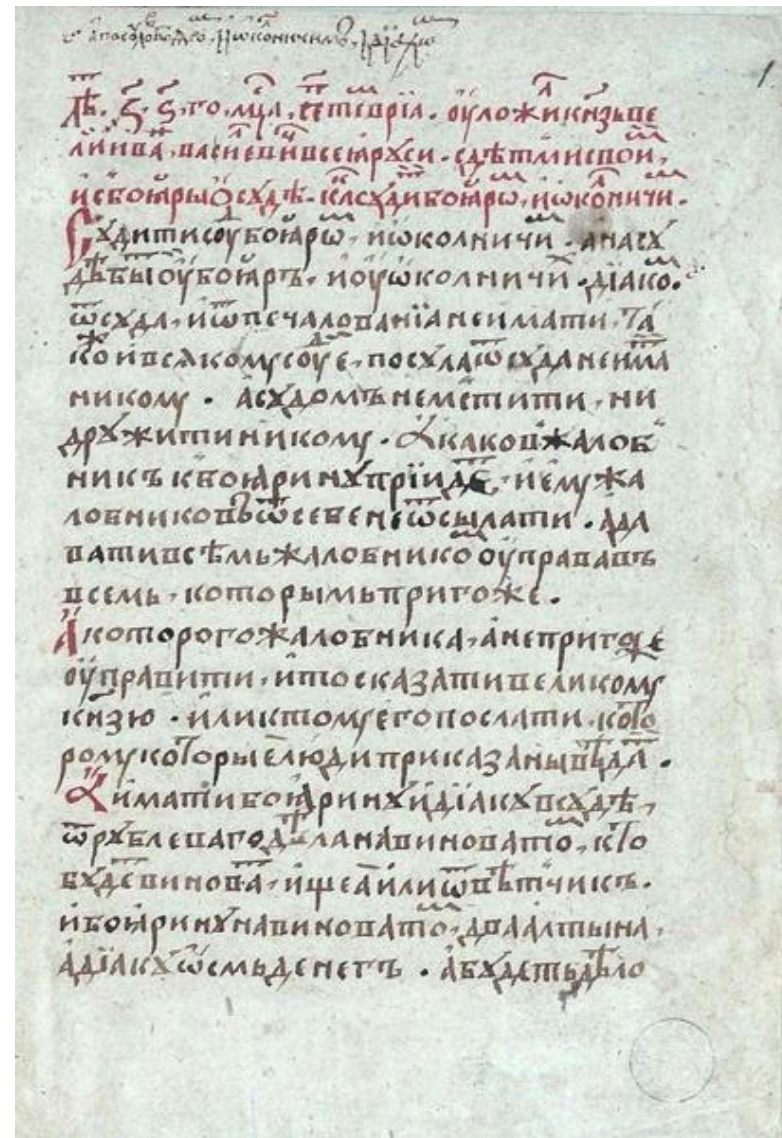 лѣ҇т. ҂ЗЗ. го. мц҇а. сетеврїа. оуложи кн҃зь ве
ли иваⷩ҇. васиеви всеѧ руси. с дѣтми свои,
и с боѧры ѡ судѣ. каⷦ҇ суди боѧрѡⷨ, и ѡкоⷧничиⷨ.
Судити суⷣ боѧрѡⷨ, и ѡколничиⷨ. а на су
дѣ бы оу боѧръ, и оу ѡколничиⷯ. дїакоⷨ.
ѿ суда, и ѿ печалованїа не имати, та
коⷤ и всякому суⷣе, посула ѿ суда не имаⷮ
никому. а судомъ не мстити, ни
дружити никому. А каков жалоб
никъ к боѧрину прїидеⷮ, и ему жа
лобниковъ ѿ себе не ѿсылати. а да
вати всѣмъ жалобникоⷨ оуправа въ
всемь, которымь пригоже.
А которого жалобника, а не пригоже
оуправити, и то сказати великому
кн҃зю. или к тому его послати, кото
рому которые люди приказаны вѣдаⷮ.
А имати боѧрину и дїаку в судѣ,
ѿ рублеваго дѣла на виноватоⷨ, кто
будеⷮ виноваⷮ, ищеа или ѿвѣтчикъ.
и боѧрину на виноватоⷨ, два алтына,
а дїаку ѡсмь денегъ. а будеть дѣло